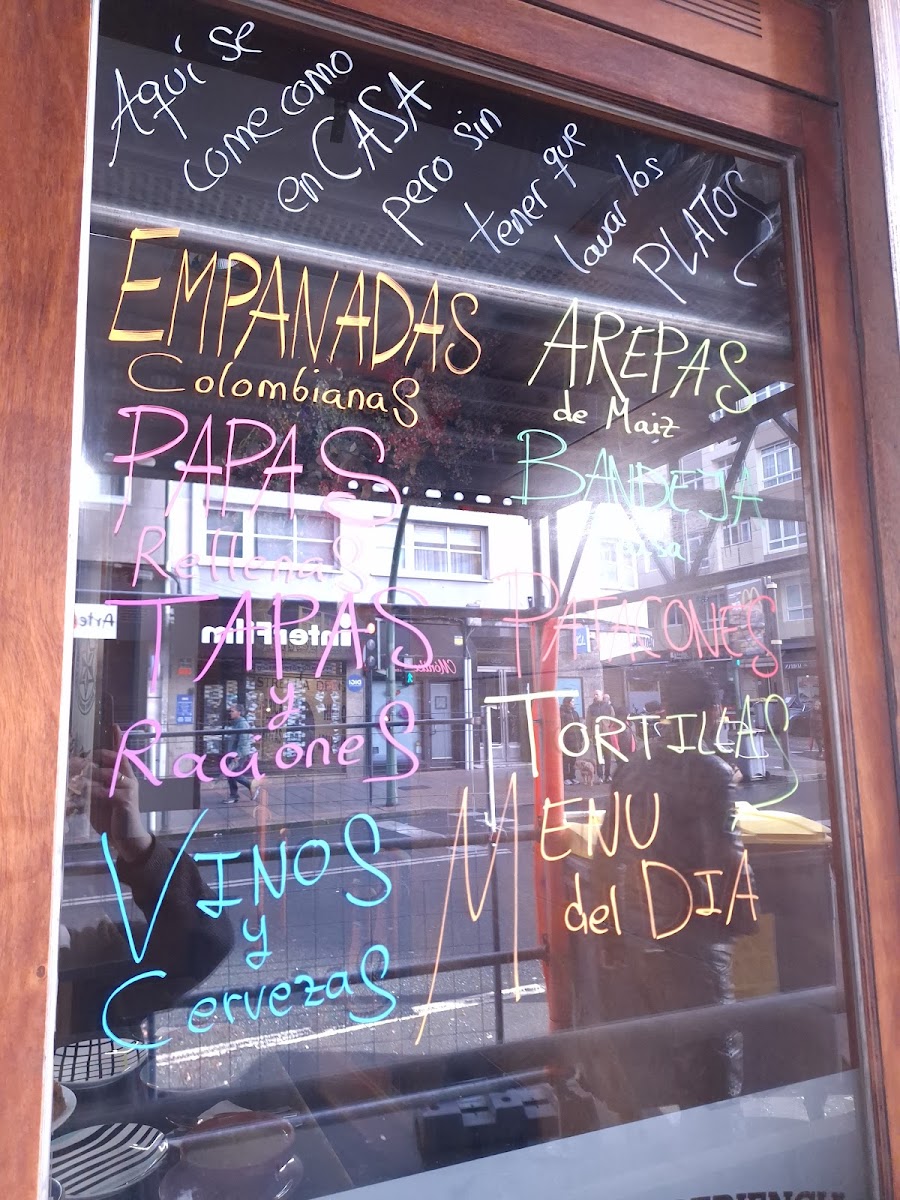 Aquí se
come como
en CASA
pero sin
tener que
lavar los
PLATOS
EMPANADAS
Colombianas
PAPAS
Rellenas
TAPAS
y
Raciones
VINOS
y
Cervezas
AREPAS
de Maiz
BANDEJA
PATACONES
TORTILLAS
MENU
del DIA
interfilm